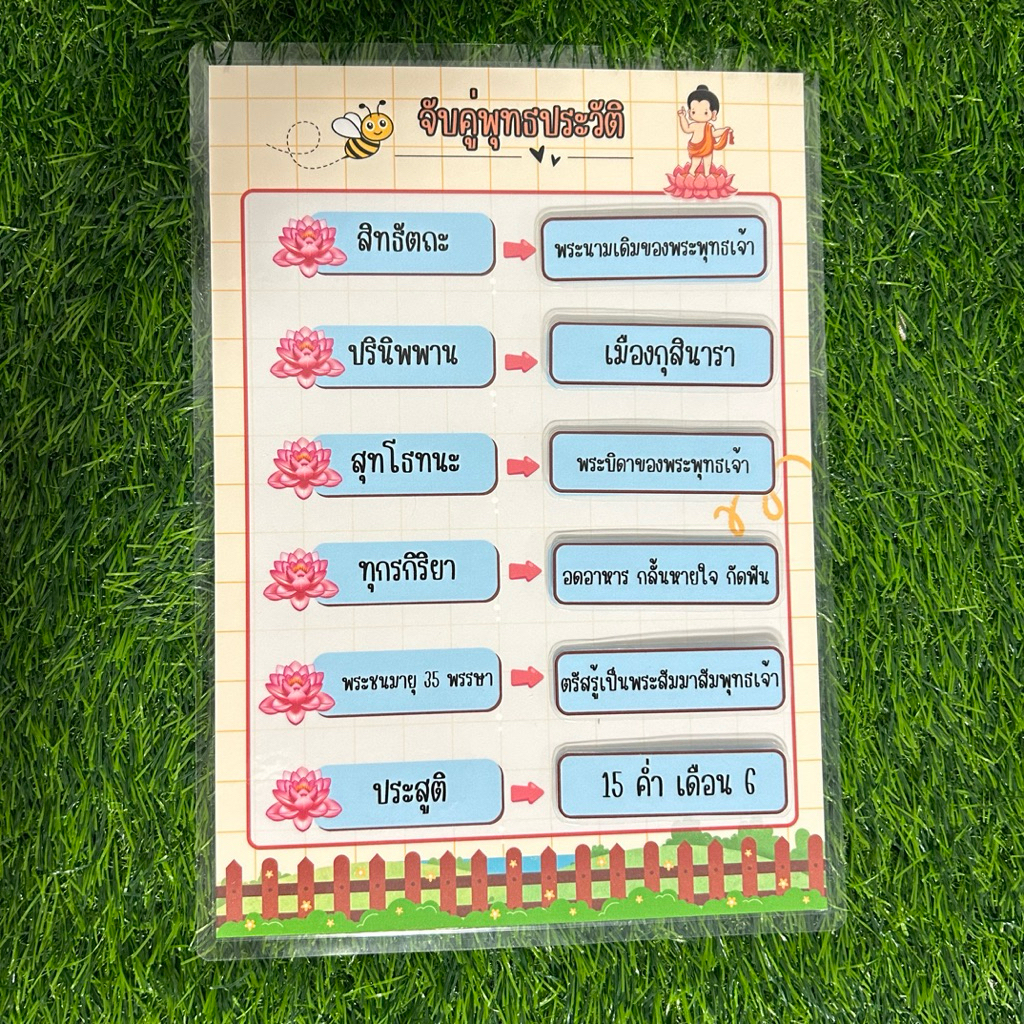 จับคู่พุทธประวัติ
สิทธัตถะ
พระนามเดิมของพระพุทธเจ้า
ปรินิพพาน
เมืองกุสินารา
สุทโธทนะ
พระบิดาของพระพุทธเจ้า
ทุกรกิริยา
อดอาหาร กลั้นหายใจ กัดฟัน
พระชนมายุ 35 พรรษา
ตรัสรู้เป็นพระสัมมาสัมพุทธเจ้า
ประสูติ
15 ค่ำ เดือน 6